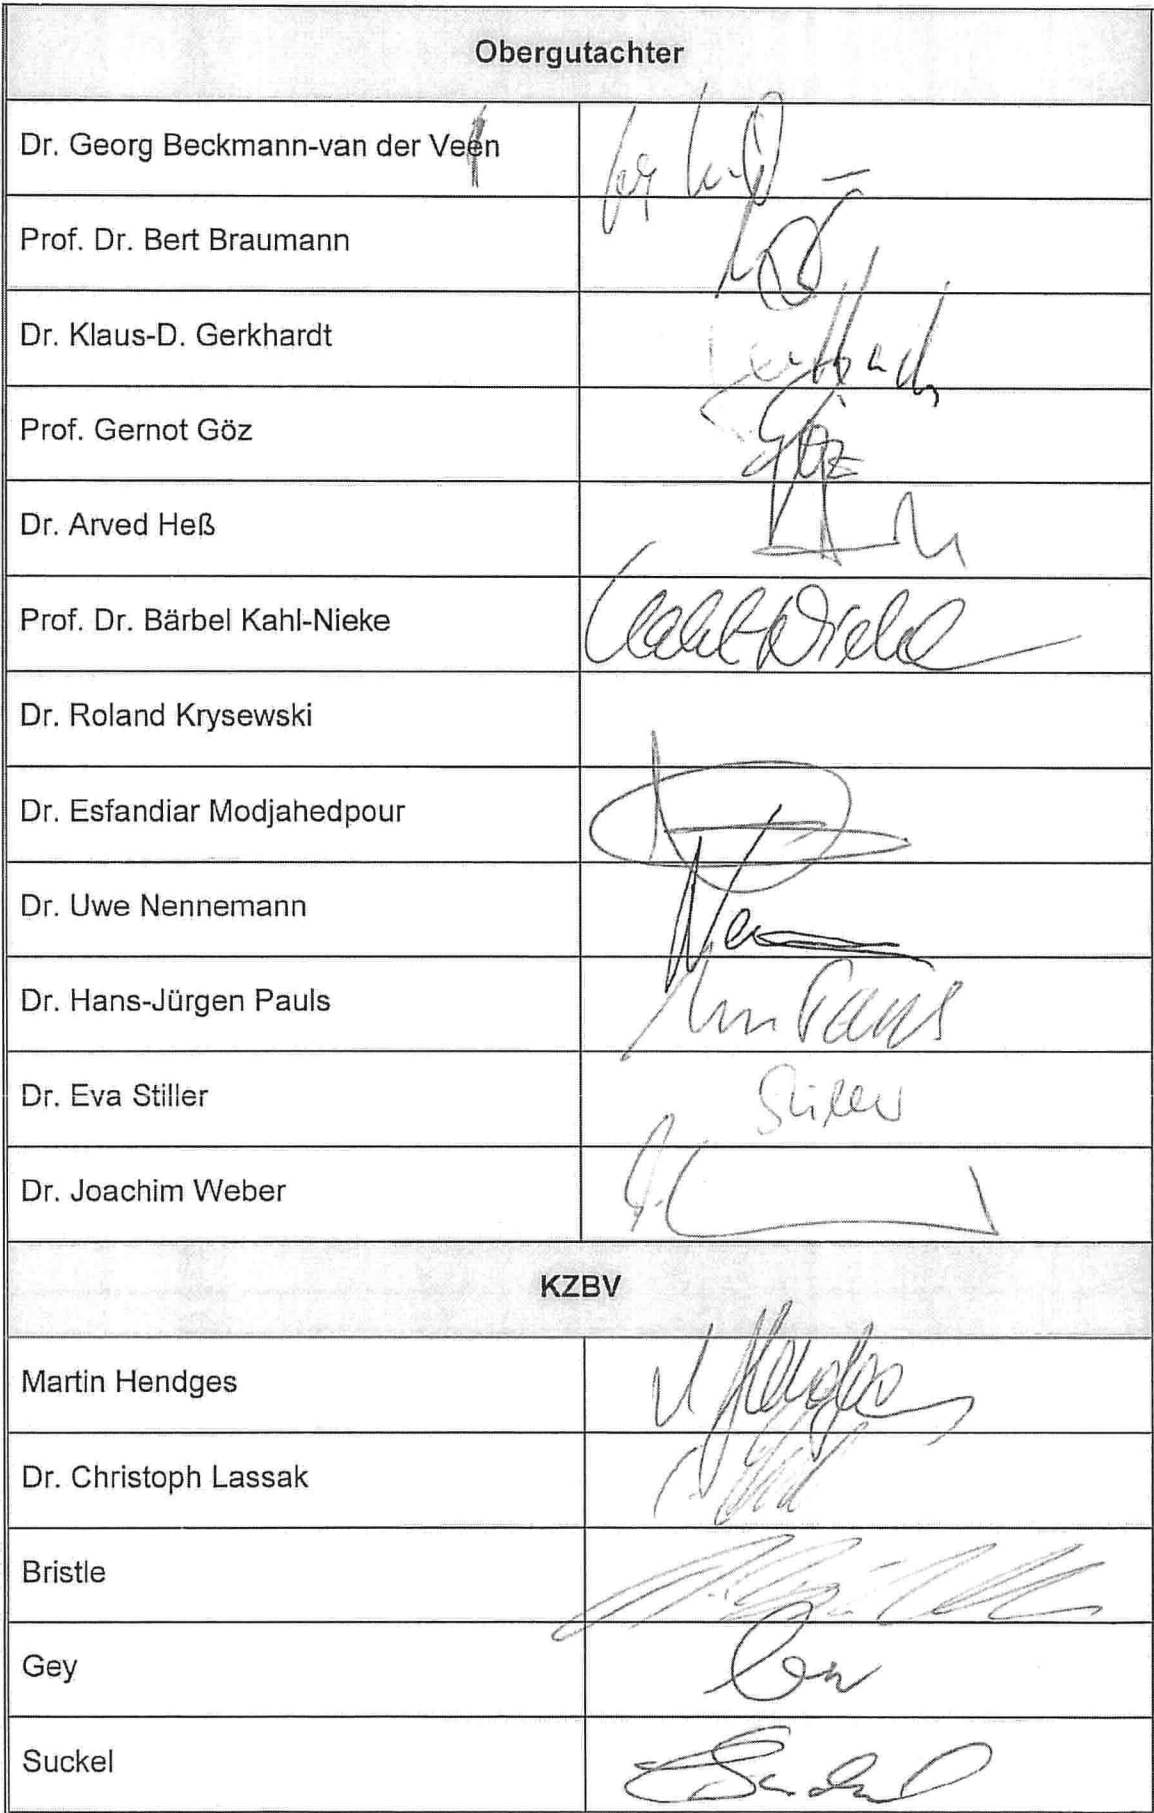 Obergutachter
Dr. Georg Beckmann-van der Veen
Prof. Dr. Bert Braumann
Dr. Klaus-D. Gerkhardt
Prof. Gernot Göz
Göz
Dr. Arved Heß
Prof. Dr. Bärbel Kahl-Nieke
Kahl-Nieke
Dr. Roland Krysewski
Dr. Esfandiar Modjahedpour
Dr. Uwe Nennemann
Dr. Hans-Jürgen Pauls
Pauls
Dr. Eva Stiller
Stiller
Dr. Joachim Weber
KZBV
Martin Hendges
Hendges
Dr. Christoph Lassak
Bristle
Gey
Suckel